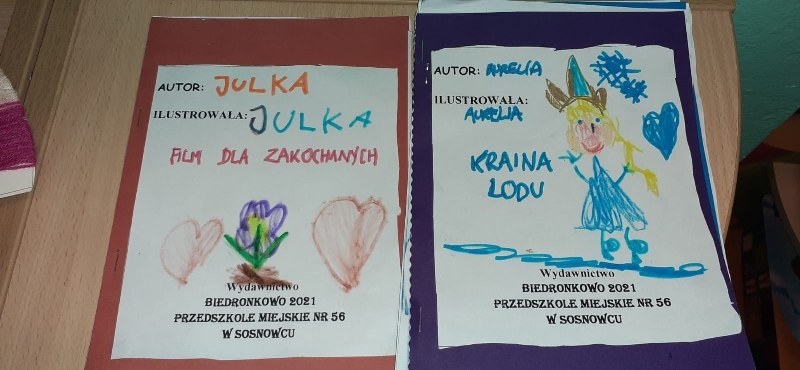 AUTOR: JULKA
ILUSTROWAŁA: JULKA
FILM DLA ZAKOCHANYCH
Wydawnictwo
BIEDRONKOWO 2021
PRZEDSZKOLE MIEJSKIE NR 56
W SOSNOWCU
AUTOR: AURELIA
ILUSTROWAŁA:
AURELIA
KRAINA
LODU
Wydawnictwo
BIEDRONKOWO 2021
PRZEDSZKOLE MIEJSKIE NR 56
W SOSNOWCU